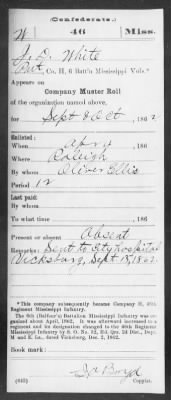 (Confederate.)
W 46 Miss.
J. D. White
Pvt, Co. H, 6 Batt'n Mississippi Vols.*
Appears on
Company Muster Roll
of the organization named above,
for Sept & Oct, 1862
Enlisted:
When Apr 4, 186
Where Raleigh
By whom Oliver Ellis
Period 12
Last paid:
By whom
To what time , 186
Present or absent Absent
Remarks: Sent to City Hospital
Vicksburg, Sept 18, 1862.
*This company subsequently became Company H, 46th
Regiment Mississippi Infantry.
The 6th (Balfour's) Battalion Mississippi Infantry was or-
ganized about April, 1862. It was afterward increased to a
regiment and its designation changed to the 46th Regiment
Mississippi Infantry by S. O. No. 82, Hd. Qrs. 2d Dist., Dept.
M and E. La., dated Vicksburg, Dec. 2, 1862.
Book mark:
Boyd
(642) Copyist.